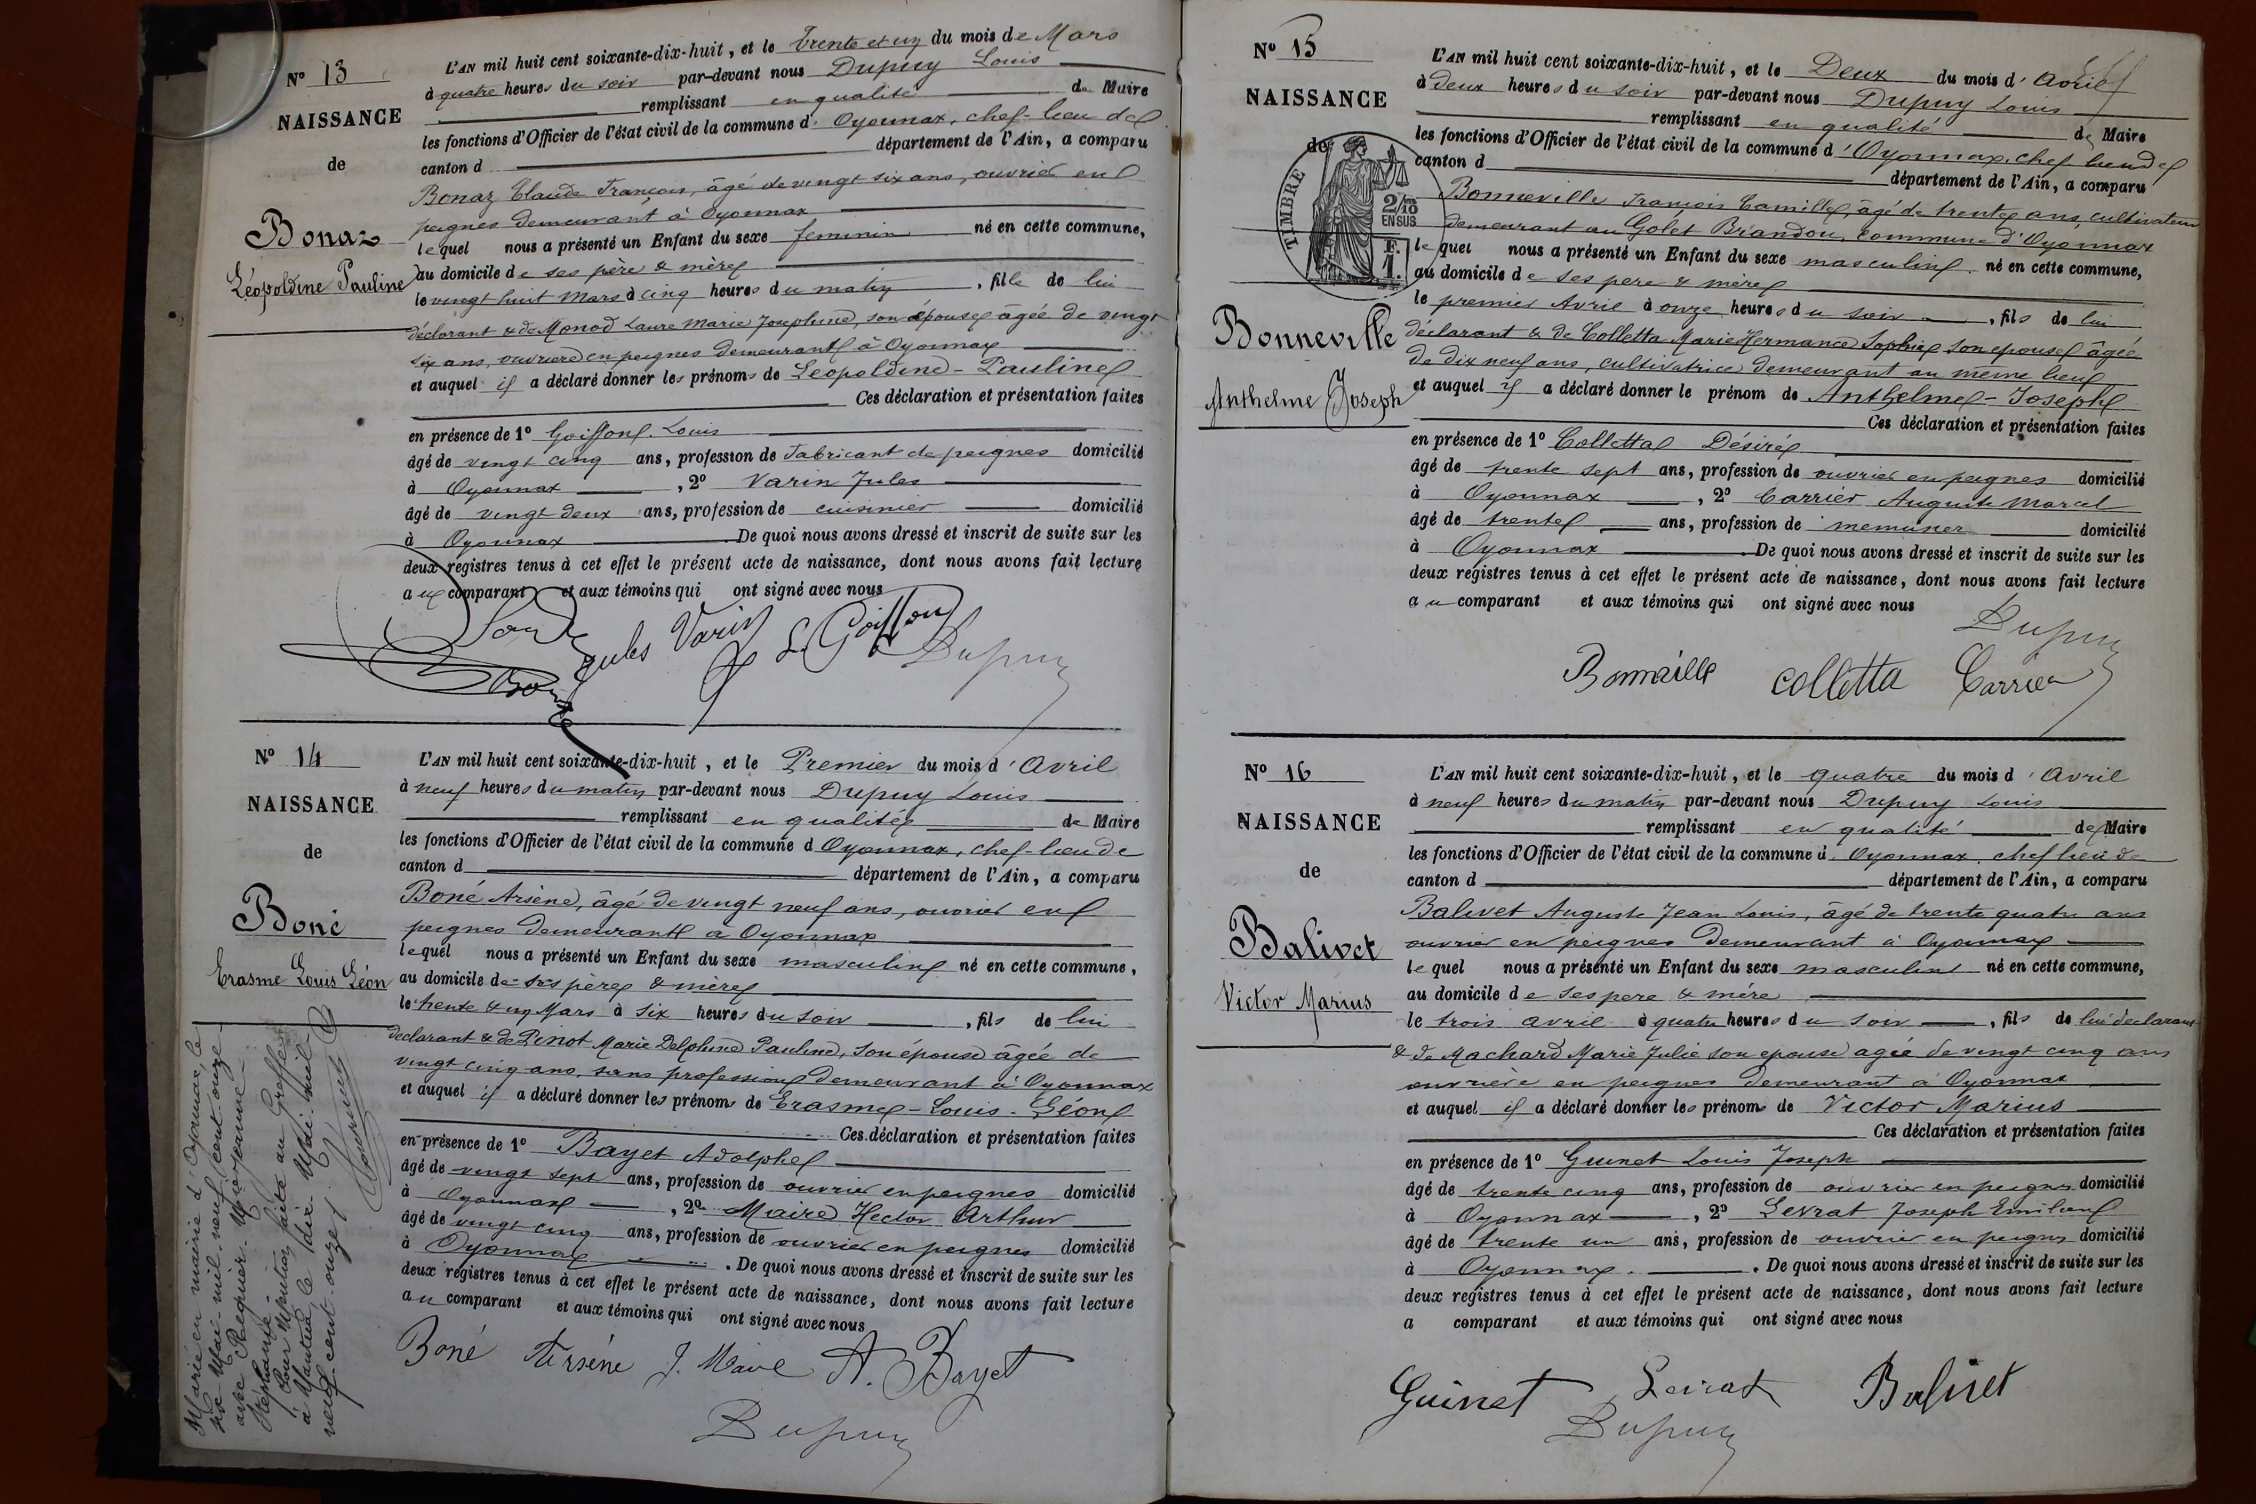 N° 13
NAISSANCE
de
Bonaz
Léopoldine Pauline
L'AN mil huit cent soixante-dix-huit, et le trente et un du mois de Mars
à quatre heures du soir par-devant nous Dupuy Louis
remplissant en qualité de Maire
les fonctions d'Officier de l'état civil de la commune d' Oyonnax, chef-lieu de
canton d département de l'Ain, a comparu
Bonaz Claude François, âgé de vingt six ans, ouvrier en
peignes demeurant à Oyonnax
lequel nous a présenté un Enfant du sexe feminin né en cette commune,
au domicile de ses père & mère
le vingt huit Mars à cinq heures du matin, fille de lui
déclarant & de Monod Laure Marie Josephine, son épouse âgée de vingt
six ans, ouvrière en peignes demeurant à Oyonnax
et auquel il a déclaré donner les prénoms de Léopoldine - Pauline
Ces déclaration et présentation faites
en présence de 1° Goiffon Louis
âgé de vingt cinq ans, profession de Fabricant de peignes domicilié
à Oyonnax, 2° Varin Jules
âgé de vingt deux ans, profession de cuisinier domicilié
à Oyonnax. De quoi nous avons dressé et inscrit de suite sur les
deux registres tenus à cet effet le présent acte de naissance, dont nous avons fait lecture
au comparant et aux témoins qui ont signé avec nous
Jules Varin L. Goiffon Dupuy
N° 14
NAISSANCE
de
Boné
Erasme Louis Léon
L'AN mil huit cent soixante-dix-huit, et le Premier du mois d'Avril
à neuf heures du matin par-devant nous Dupuy Louis
remplissant en qualité de Maire
les fonctions d'Officier de l'état civil de la commune d Oyonnax, chef-lieu de
canton d département de l'Ain, a comparu
Boné Arsène, âgé de vingt neuf ans, ouvrier en
peignes demeurant à Oyonnax
lequel nous a présenté un Enfant du sexe masculin né en cette commune,
au domicile de ses père & mère
le trente & un Mars à six heures du soir, fils de lui
déclarant & de Pinot Marie Delphine Pauline, son épouse âgée de
vingt cinq ans, sans profession demeurant à Oyonnax
et auquel il a déclaré donner les prénoms de Erasme - Louis - Léon
Ces déclaration et présentation faites
en présence de 1° Bayet Adolphe
âgé de vingt sept ans, profession de ouvrier en peignes domicilié
à Oyonnax, 2° Maire Hector Arthur
âgé de vingt cinq ans, profession de ouvrier en peignes domicilié
à Oyonnax. De quoi nous avons dressé et inscrit de suite sur les
deux registres tenus à cet effet le présent acte de naissance, dont nous avons fait lecture
au comparant et aux témoins qui ont signé avec nous
Boné Arsène J. Maire A. Bayet
Dupuy
Marié en mairie d'Oyonnax, le
six Mai mil neuf cent onze
avec Réquier Marie Jeanne
Stéphanie
Pour Mention faite au Greffe
à Nantua, le dix Mai mil
neuf cent onze
N° 15
NAISSANCE
de
TIMBRE
2/10
EN SUS
F.
1.
Bonneville
Anthelme Joseph
L'AN mil huit cent soixante-dix-huit, et le Deux du mois d'Avril
à deux heures du soir par-devant nous Dupuy Louis
remplissant en qualité de Maire
les fonctions d'Officier de l'état civil de la commune d'Oyonnax, chef lieu de
canton d département de l'Ain, a comparu
Bonneville François Camille, âgé de trente ans, cultivateur
demeurant au Golet Brandon, commune d'Oyonnax
lequel nous a présenté un Enfant du sexe masculin né en cette commune,
au domicile de ses père & mère
le premier Avril à onze heures du soir, fils de lui
déclarant & de Colletta Marie Hermance Sophie son épouse âgée
de dix neuf ans, cultivatrice demeurant au même lieu
et auquel il a déclaré donner le prénom de Anthelme - Joseph
Ces déclaration et présentation faites
en présence de 1° Colletta Désiré
âgé de trente sept ans, profession de ouvrier en peignes domicilié
à Oyonnax, 2° Carrier Auguste Marcel
âgé de trente ans, profession de menuisier domicilié
à Oyonnax. De quoi nous avons dressé et inscrit de suite sur les
deux registres tenus à cet effet le présent acte de naissance, dont nous avons fait lecture
au comparant et aux témoins qui ont signé avec nous
Dupuy
Bonneville Colletta Carrier
N° 16
NAISSANCE
de
Balivet
Victor Marius
L'AN mil huit cent soixante-dix-huit, et le quatre du mois d'Avril
à neuf heures du matin par-devant nous Dupuy Louis
remplissant en qualité de Maire
les fonctions d'Officier de l'état civil de la commune d Oyonnax, chef lieu de
canton d département de l'Ain, a comparu
Balivet Auguste Jean Louis, âgé de trente quatre ans
ouvrier en peignes demeurant à Oyonnax
lequel nous a présenté un Enfant du sexe masculin né en cette commune,
au domicile de ses père & mère
le trois avril à quatre heures du soir, fils de lui déclarant
& de Machard Marie Julie son épouse agée de vingt cinq ans
ouvrière en peignes demeurant à Oyonnax
et auquel il a déclaré donner les prénoms de Victor Marius
Ces déclaration et présentation faites
en présence de 1° Guinet Louis Joseph
âgé de trente cinq ans, profession de ouvrier en peignes domicilié
à Oyonnax, 2° Levrat Joseph Emilien
âgé de trente un ans, profession de ouvrier en peignes domicilié
à Oyonnax. De quoi nous avons dressé et inscrit de suite sur les
deux registres tenus à cet effet le présent acte de naissance, dont nous avons fait lecture
a comparant et aux témoins qui ont signé avec nous
Guinet Levrat Balivet
Dupuy